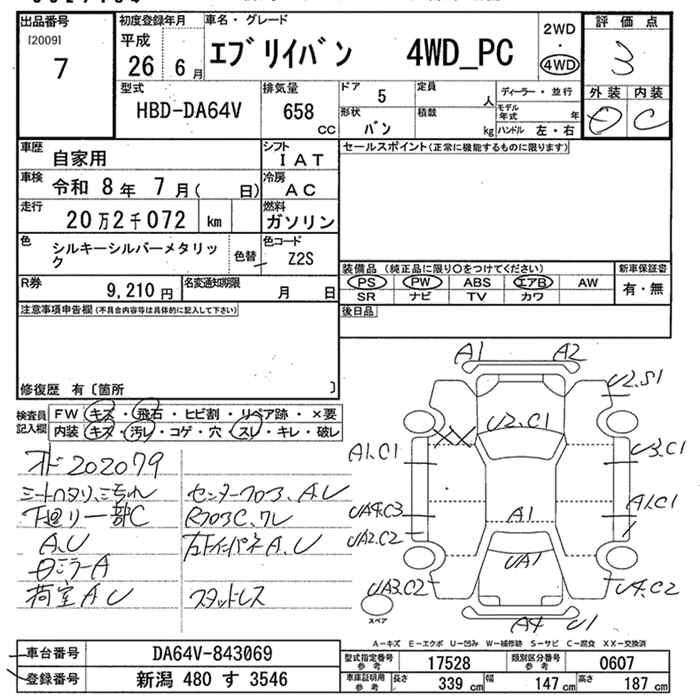 出品番号
[2009]
7
初度登録年月
平成
26 6月
車名・グレード
エブリイバン 4WD_PC
2WD
・
4WD
評価点
3
外装 内装
D C
型式
HBD-DA64V
排気量
658
CC
ドア
5
形状
バン
定員
人
積載
kg
ディーラー・並行
モデル
年式 年
ハンドル 左・右
車歴
自家用
シフト
IAT
セールスポイント(正常に機能するものに限ります)
車検
令和 8年 7月( 日)
冷房
AC
走行
20万2千072 km
燃料
ガソリン
色
シルキーシルバーメタリッ
ク
色替
色コード
Z2S
装備品(純正品に限り○をつけてください)
PS PW ABS エアB AW
SR ナビ TV カワ
新車保証書
有・無
R券
9,210円
名変通知期限
月 日
後日品
注意事項申告欄(不具合内容等は具体的に記入して下さい)
修復歴 有〔箇所 〕
検査員
記入欄
FW キズ・飛石・ヒビ割・リペア跡・×要
内装 キズ・汚レ・コゲ・穴・スレ・キレ・破レ
オド202079
下廻り一部C
A、U
日ミラーA
荷室AU
センターフロア、A、U
スタットレス
A1 A2
U2.S1
U2.C1
A1.C1
U3.C1
UA4.C3
A1
A1.C1
UA2.C2
UA1
UA3.C2
U4.C2
A4 U1
スペア
A-キズ E-エクボ U-凹み W-補修跡 S-サビ C-腐食 XX-交換済
車台番号
DA64V-843069
登録番号
新潟 480 す 3546
型式指定番号
参考
17528
類別区分番号
参考
0607
車庫証明用
参考
長さ
339 cm
幅
147 cm
高さ
187 cm